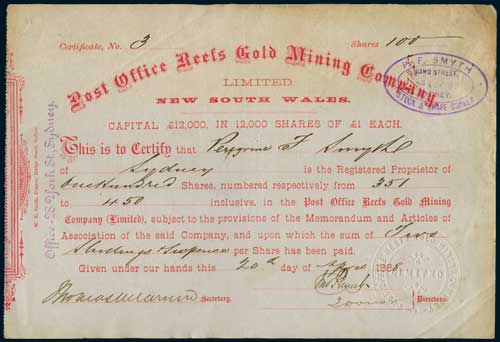 Certificate, No. 3 Shares 100
Post Office Reefs Gold Mining Company,
LIMITED.
NEW SOUTH WALES.
CAPITAL £12,000, IN 12,000 SHARES OF £1 EACH.
This is to Certify that Peregrine F Smythe
of Sydney is the Registered Proprietor of
One Hundred Shares, numbered respectively from 351
to 450 inclusive, in the Post Office Reefs Gold Mining
Company (Limited), subject to the provisions of the Memorandum and Articles of
Association of the said Company, and upon which the sum of Two
Shillings & Sixpence per Share has been paid.
Given under our hands this 20th day of 1888
Secretary. Directors.
P. F. SMYTH
BOND STREET,
SYDNEY.
STOCK & SHARE
Office-28 York St, Sydney.